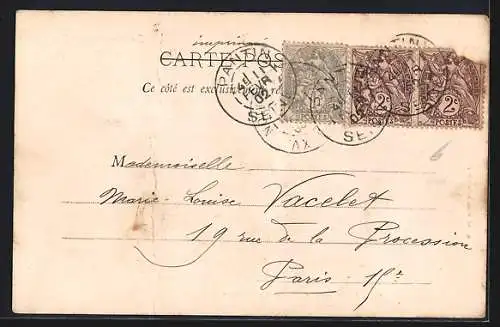 imprimé
CARTE POS
Ce côté est exclusivement
PANTIN
PANTIN
02
SEINE
2c
2c
POSTES
6
Mademoiselle
Marie-Louise Vacelet
19 rue de la Procession
Paris 15e